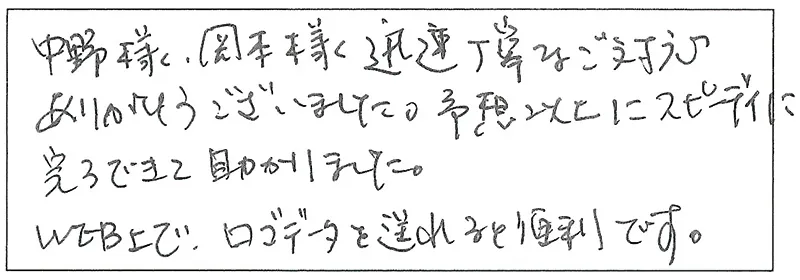 中野様、岡本様、迅速丁寧なご対応
ありがとうございました。予想以上にスピーディに
完了できて助かりました。
WEB上で、ロゴデータを送れると便利です。